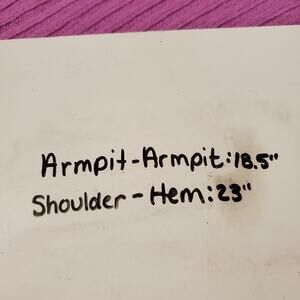 Armpit-Armpit:18.5"
Shoulder-Hem:23"